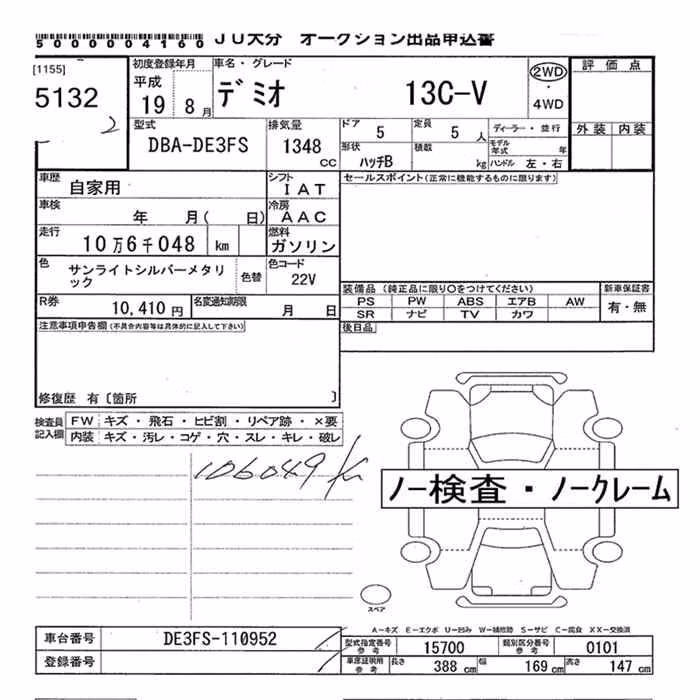 5000004160 JU大分 オークション出品申込書
[1155]
5132
2
初度登録年月
平成
19 8月
車名・グレード
デミオ 13C-V
2WD
・
4WD
評価点
外装 内装
型式
DBA-DE3FS
排気量
1348
cc
ドア
5
定員
5 人
ディーラー・並行
モデル年式 年
形状
ハッチB
積載
kg
ハンドル 左・右
車歴
自家用
シフト
IAT
セールスポイント(正常に機能するものに限ります)
車検
年 月( 日)
冷房
AAC
走行
10万6千048 km
燃料
ガソリン
色
サンライトシルバーメタリック
色替
色コード
22V
装備品 (純正品に限り○をつけてください)
新車保証書
PS PW ABS エアB AW
有・無
SR ナビ TV カワ
R券
10,410円
名変通知期限
月 日
後日品
注意事項申告欄(不具合内容等は具体的に記入して下さい)
修復歴 有〔箇所 〕
検査員記入欄
FW キズ・飛石・ヒビ割・リペア跡・×要
内装 キズ・汚レ・コゲ・穴・スレ・キレ・破レ
106049 km
ノー検査・ノークレーム
スペア
A－キズ E－エクボ U－凹み W－補修跡 S－サビ C－腐食 XX－交換済
車台番号 DE3FS-110952
登録番号
型式指定番号
参考
15700
類別区分番号
参考
0101
車庫証明用
参考
長さ 388 cm
幅 169 cm
高さ 147 cm